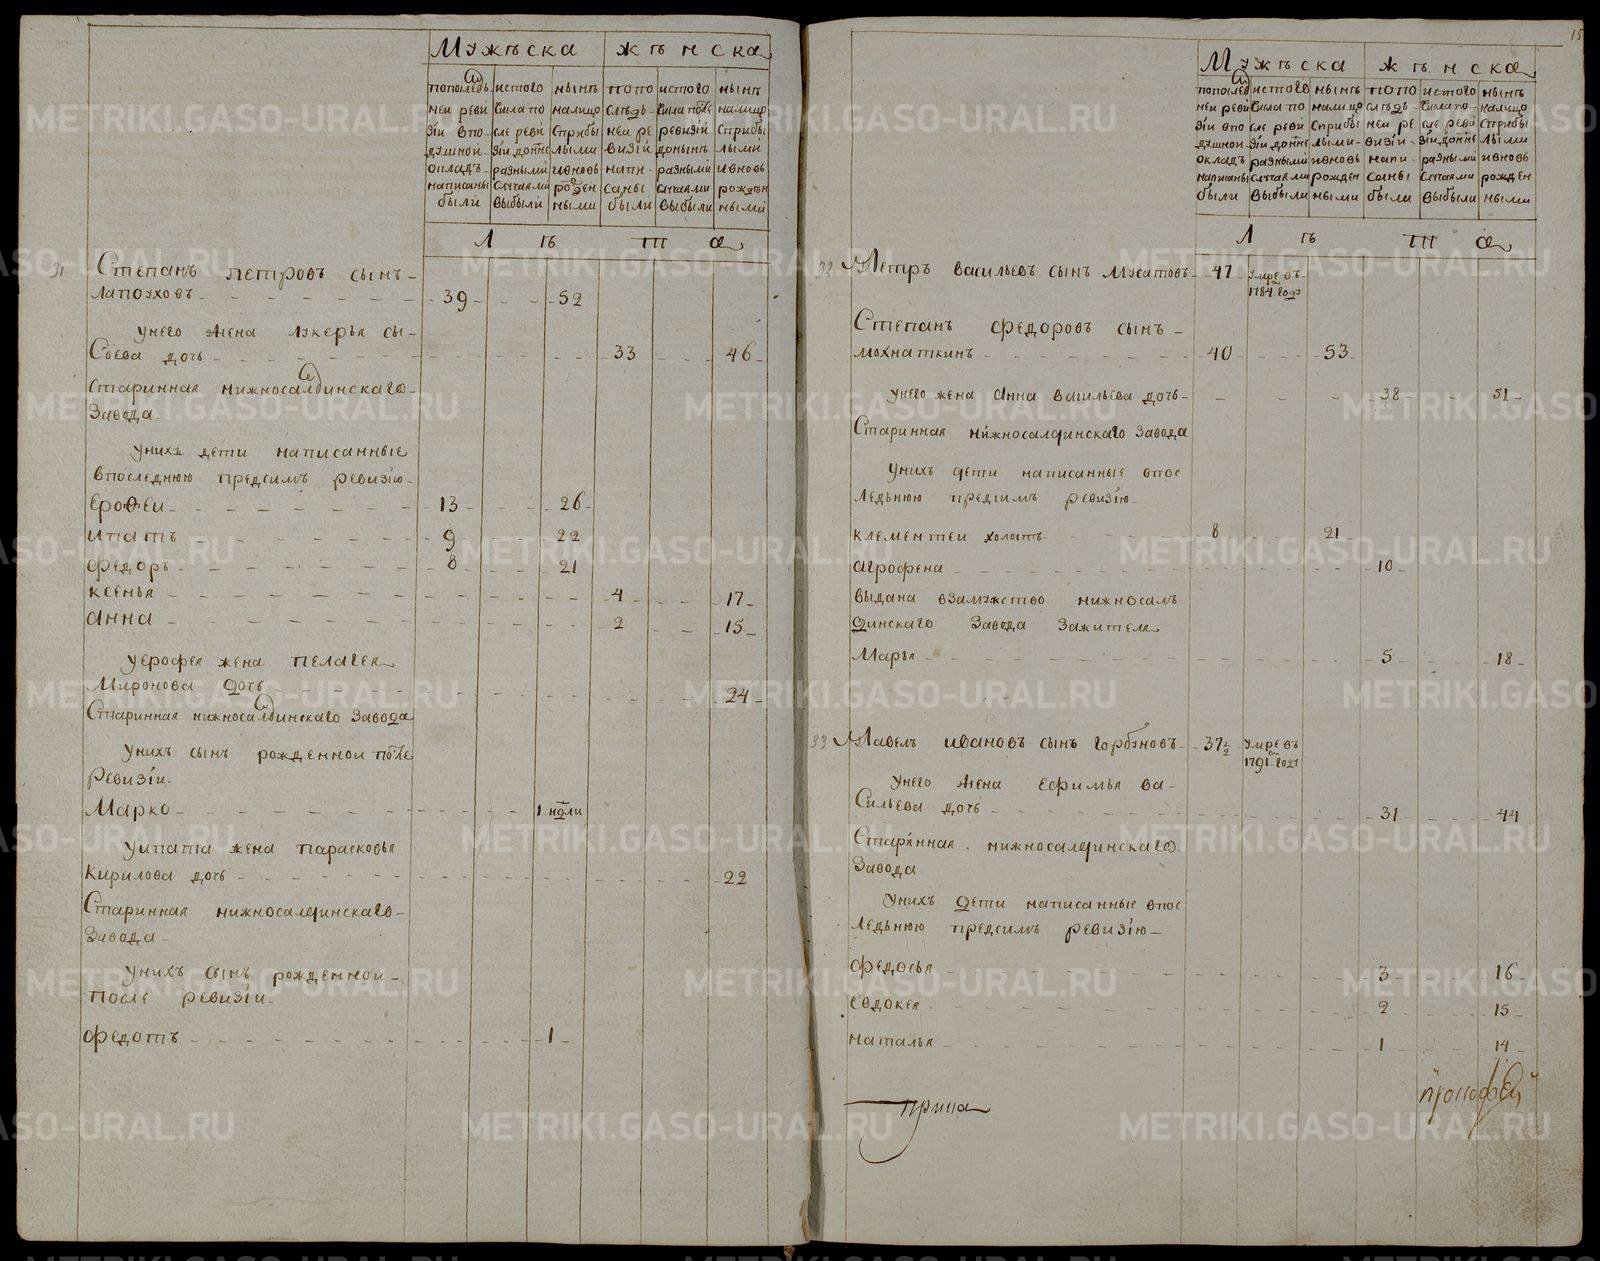 Мужъска жънска
пополедь
ней реви
зіи впо
душной
окладъ
написаны
были
истого
числа по
сле реви
зіи доныне
разными
случаями
выбыли
нынъ
налицо
сприбы
лыми
ивновь
рожден
ными
попо
слъдь
ней ре
визіи
напи
саны
были
истого
числа после
ревизіи
донынъ
разными
случаями
выбыли
нынъ
налицо
сприбы
лыми
ивновь
рожден
ными
Л ъ т а
31 Степанъ петровъ сынъ
лапоуховъ 39 52
унего жена лукерья сы
соева дочь 33 46
старинная нижносалдинскаго
завода
унихъ дети написанные
впоследнюю предсимъ ревизію
ерофеи 13 26
ипатъ 9 22
федоръ 8 21
ксенья 4 17
анна 2 15
уерофея жена пелагея
миронова дочь 24
старинная нижносалдинскаго завода
унихъ сынъ рожденной после
ревизіи
Марко 1 ндли
уипата жена парасковья
кирилова дочь 22
старинная нижносалдинскаго
завода
унихъ сынъ рожденной
после ревизіи
федотъ 1
15
Мужъска жънска
пополед
ней реви
зіи впо
душной
окладъ
написаны
были
истого
числа по
сле реви
зіи доныне
разными
случаями
выбыли
нынъ
налицо
сприбы
лыми
ивновь
рожден
ными
попо
слъдь
ней ре
визіи
напи
саны
были
истого
числа по
сле реви
зіи доныне
разными
случаями
выбыли
нынъ
налицо
сприбы
лыми
ивновь
рожден
ными
Л ъ т а
32 Петръ васильевъ сынъ мусатовъ 47 умре въ
1784 году
Степанъ федоровъ сынъ
мохнаткинъ 40 53
унего жена анна васильева дочь 38 51
старинная нижносалдинскаго завода
унихъ дети написанные впос
ледьнюю предсимъ ревизію
клементеи холостъ 8 21
агрофена 10
выдана взамужство нижносалъ
динскаго завода зажителя
Марья 5 18
33 Павелъ ивановъ сынъ горбуновъ 37½ умре въ
1791 году
унего жена ефимья ва
сильева дочь 31 44
старинная нижносалдинскаго
завода
унихъ дети написанные впос
ледьнюю предсимъ ревизію
федосья 3 16
евдокея 2 15
наталья 1 14
METRIKI.GASO-URAL.RU